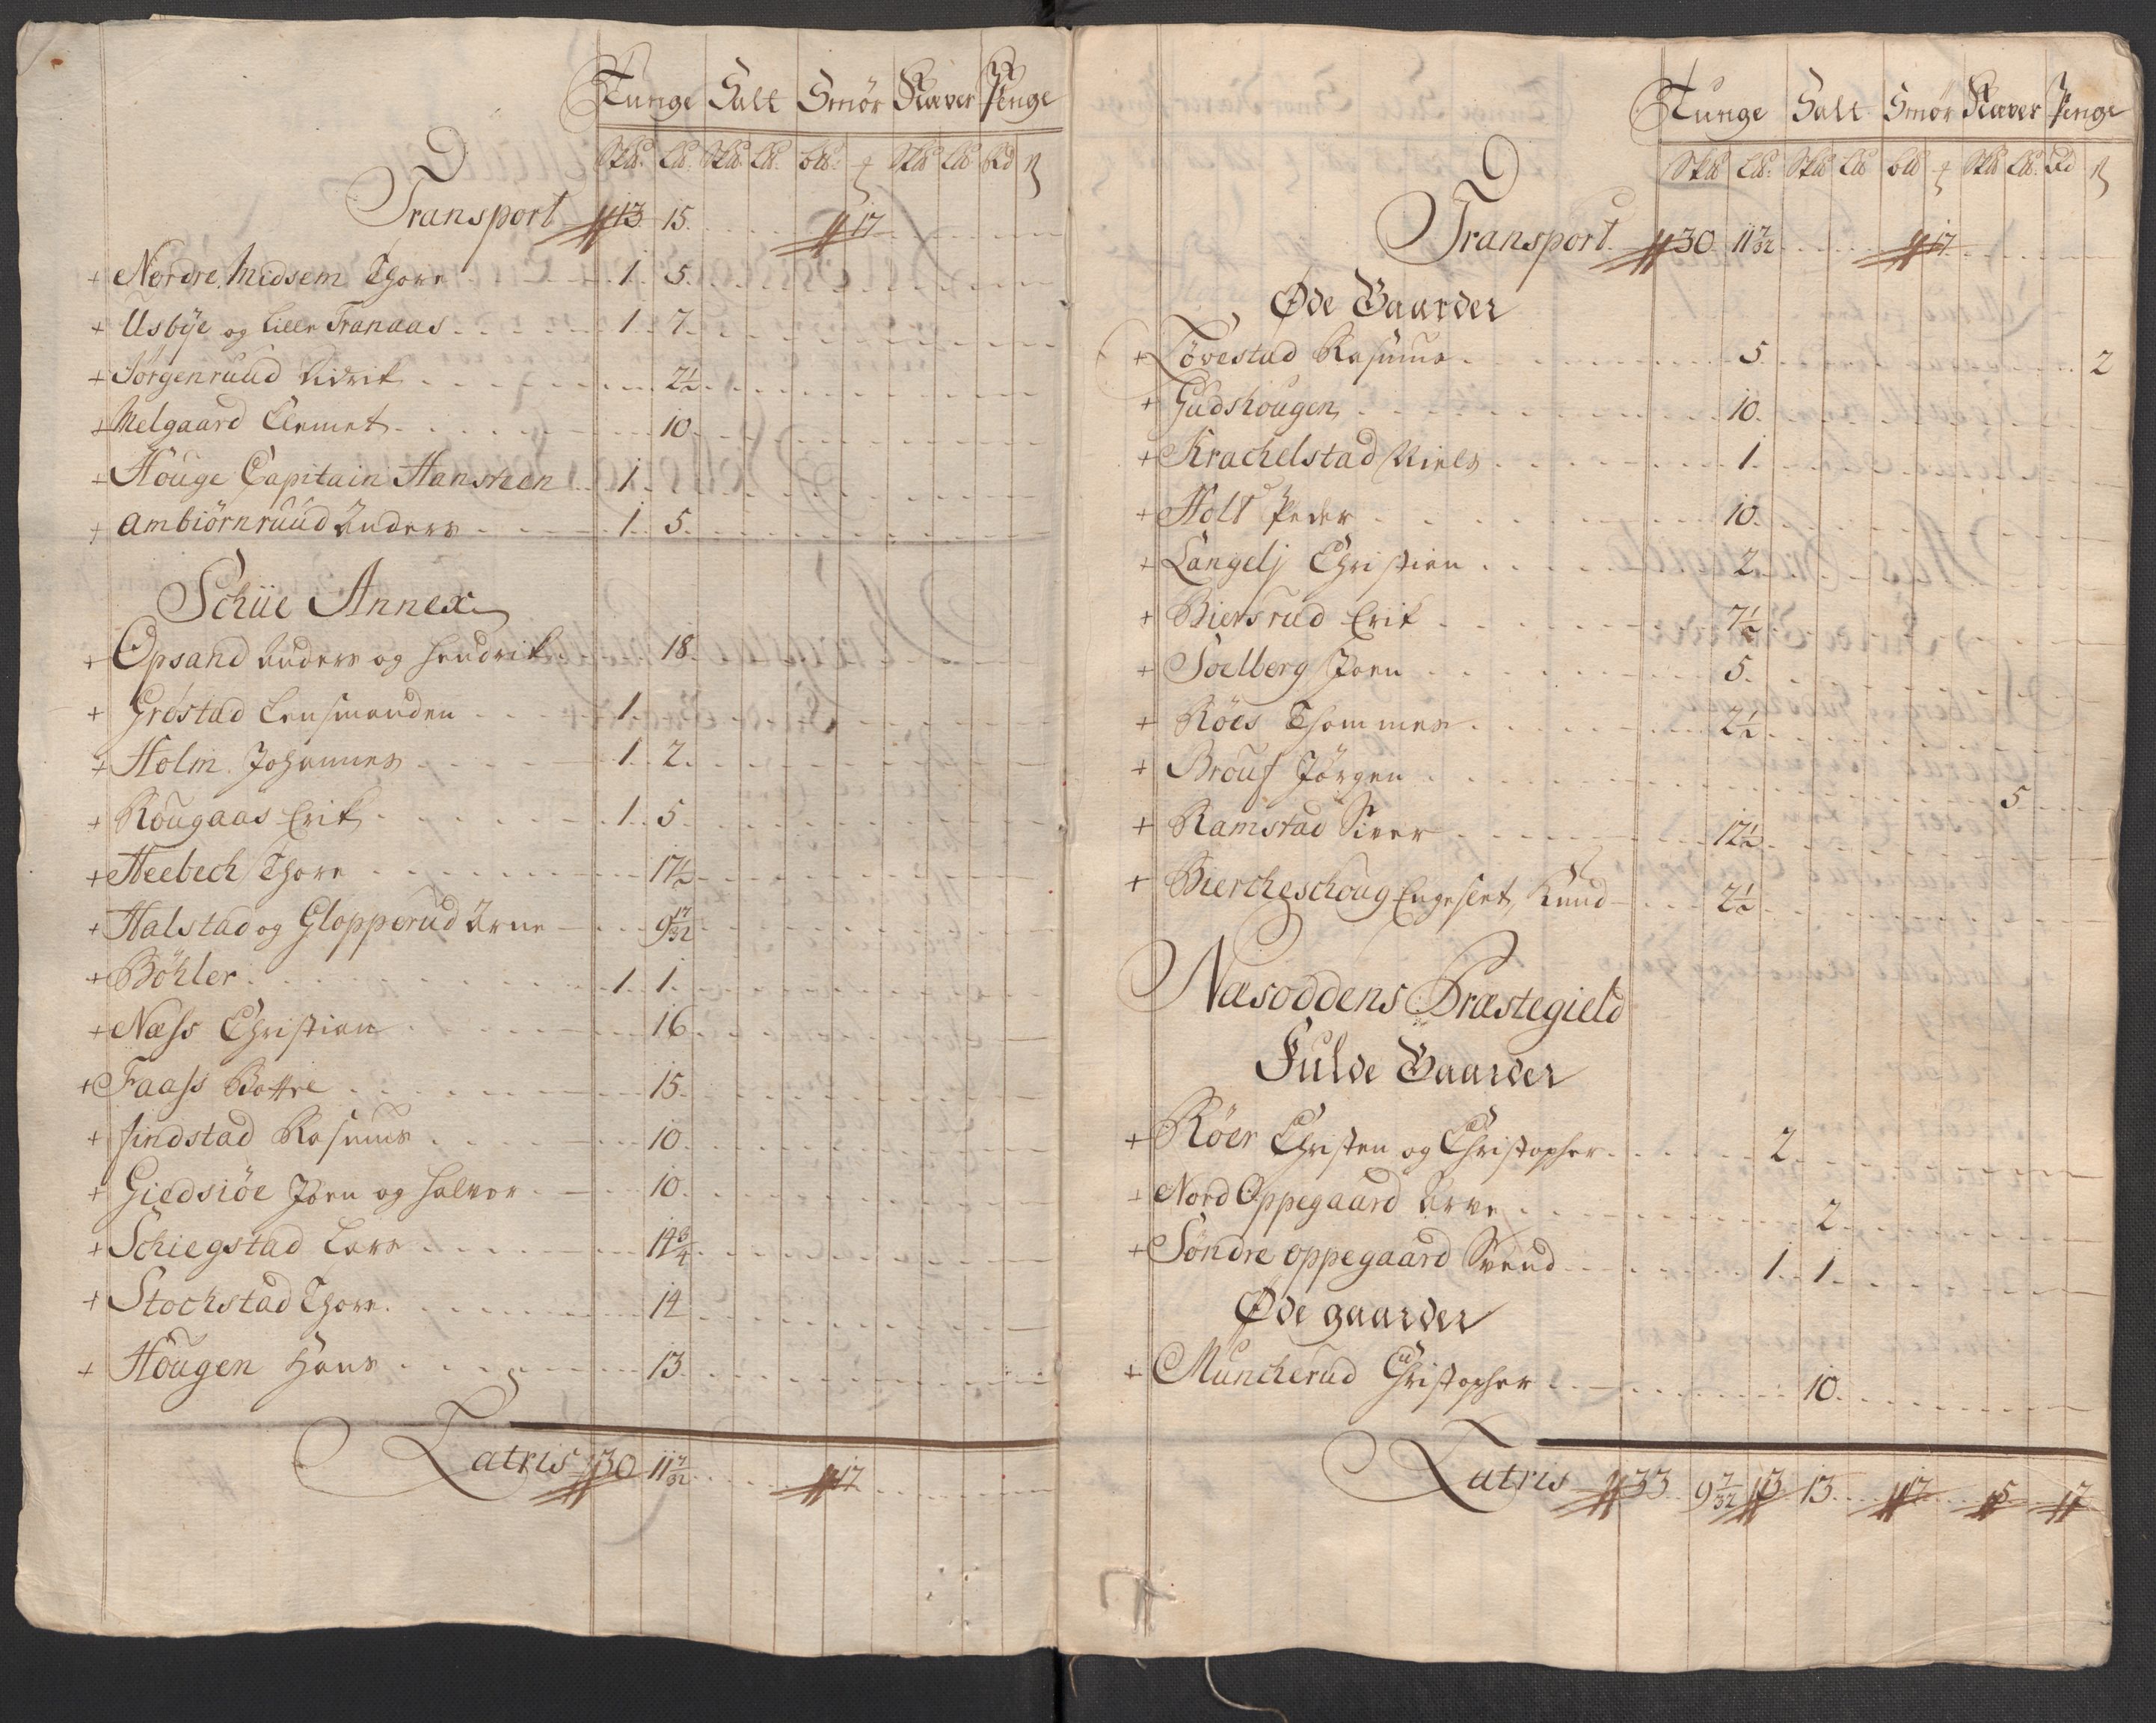 Tunge Salt Smør Ræver Penge
Transport 13 15 17
+ Nordre Midsem Thore 1 5
+ Usbÿe og Lille Franaas 1 7
+ Jørgenruud Didrik 2½
+ Melgaard Clemet 10
+ Houge Capitain Hansteen 1
+ Ambiørnruud Anders 1 5
Schiie Annex
+ Opsand Anders og Hendrik 18
+ Grøstad Lensmanden 1
+ Holm Johannes 1 2
+ Rougaas Erik 1 5
+ Heebech Thore 17½
+ Halstad og Glopperud Arne 9 17/32
+ Bøhler 1 1
+ Næss Christian 16
+ Faass Bottre 15
+ Findstad Rasmus 10
+ Giedsiøe Joen og Halvor 10
+ Schiegstad Lars 14¾
+ Stochstad Thore 14
+ Hougen Hans 13
Latris 30 11 7/32 17
Tunge Salt Smør Ræver Penge
Transport 30 11 7/32 17
Øde Gaarder
+ Tøvestad Rasmus 5 2
+ Gudshougen 10
+ Krachelstad Niels 1
+ Holt Peder 10
+ Langelj Christian 2
+ Biersrud Erik 7½
+ Soelberg Joen 5
+ Røes Thommes 2½
+ Brouf Jørgen 5
+ Ramstad Siver 12½
+ Biercheschoug Engeslet, Knud 2½
Næsoddens Præstegield
Fulde Gaarder
+ Røer Christen og Christopher 2
+ Nord Oppegaard Arne 2
+ Søndre oppegaard Svend 1 1
Øde gaarder
+ Muncherud Christopher 10
Latris 33 9 7/32 3 13 17 5 2